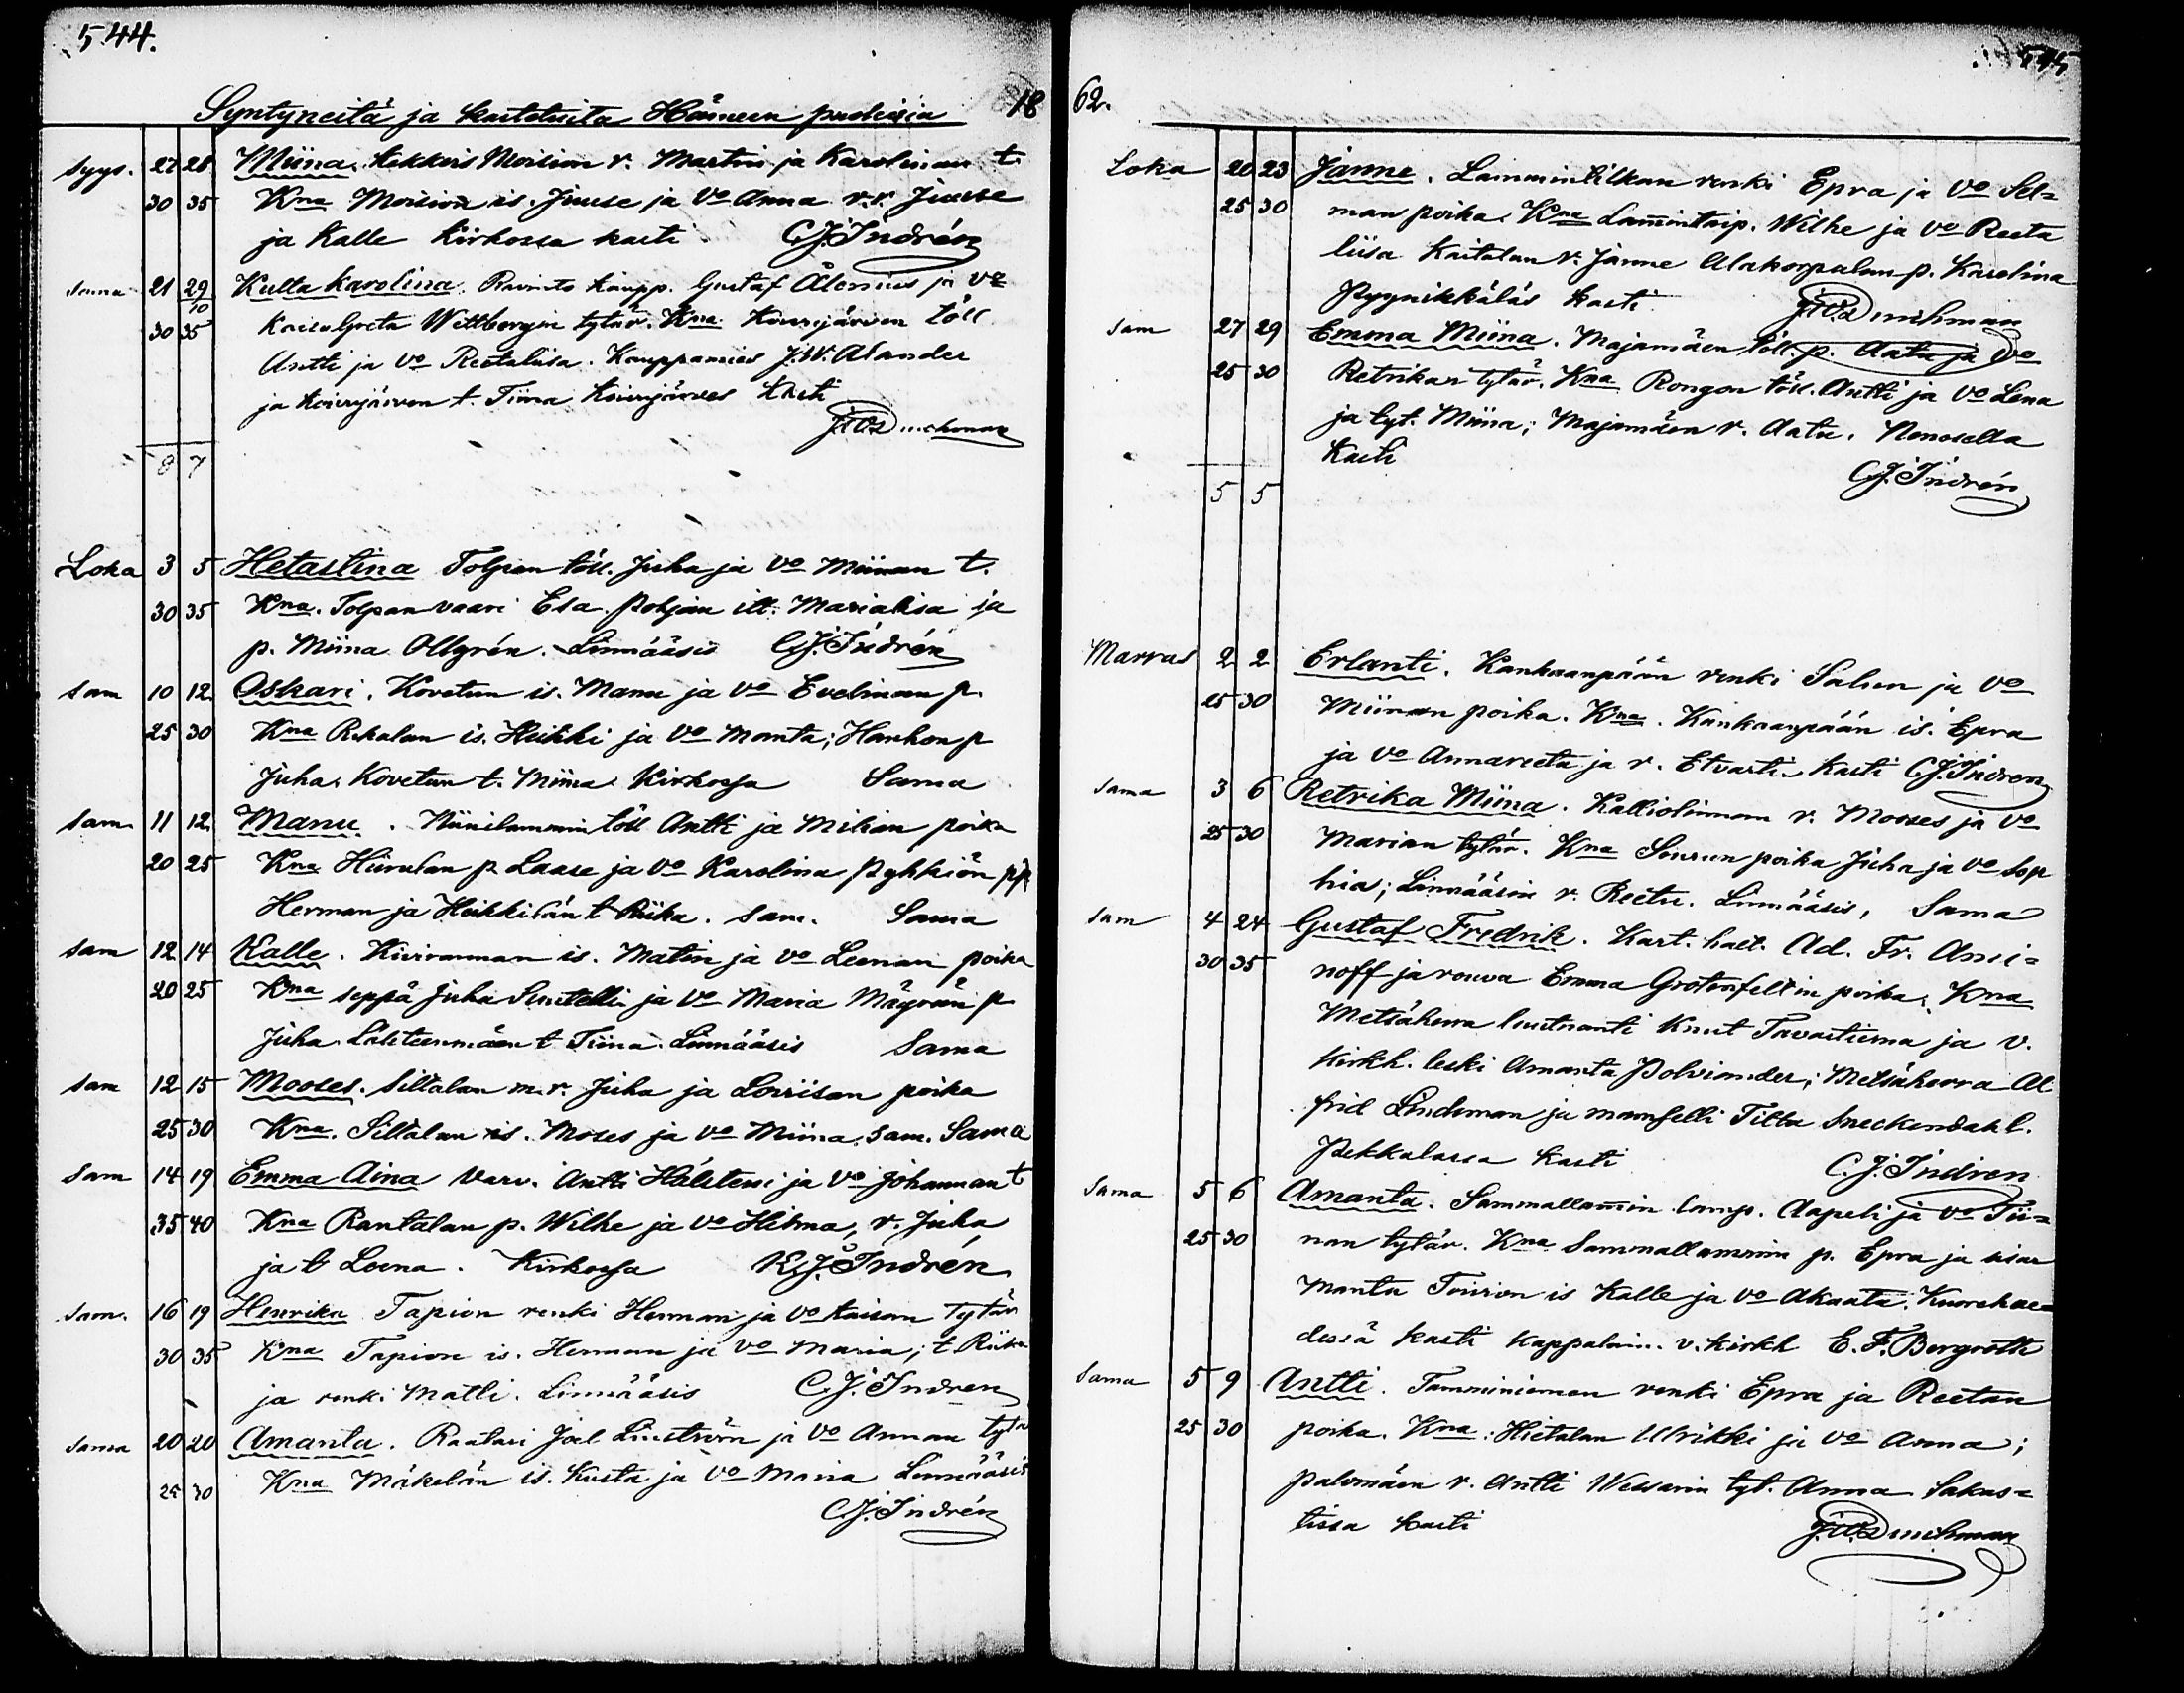 544.
Syntyneitä ja kastetuita Hämeen puolisia 18
syys. 27 28 Miina. tekkers Moision r. Martin ja Karolinan t.
30 35 Kna Moision is. Juuse ja Vo Anna r.r. Juuse
ja Kalle Kirkossa kasti C.J. Indrén
sama 21 29/10 Kulta Karolina. Ravinto kaupp. Gustaf Alenius ja Vo
30 35 Kaisa Greta Wittbergin tytär. Kna Kourujärven töll
Antti ja Vo Reetaliisa. Kauppamies J.W. Alander
ja Kourujärven t. Tiina Kourujärves Kasti
8 7
Loka 3 5 Hetastina Tolpan töll. Juha ja Vo Miinan t.
30 35 Kna. Tolpan vaari Esa. Pohjan itt. Marialisa ja
p. Miina Ollgrén. Linnääsis C.J. Indrén
sam 10 12 Oskari. Kovetun is. Manu ja Vo Evelinan p.
25 30 Kna Rekolan is. Heikki ja Vo Manta; Hanhon p
Juha. Kovetun t. Miina. Kirkossa Sama
sam. 11 12 Manu. Niinilammin töll Antti ja Milian poika
20 25 Kna Hiirolan p. Laase ja Vo Karolina Pyhkiön pp
Herman ja Heikkilän t Riika. sam. Sama
sam 12 14 Kalle. Kiviranman is. Matin ja Vo Leenan poika
20 25 Kna seppä Juha Suntelli ja Vo Maria Mäyrän p
Juha Lähteenmäen t Tiina. Linnääsis Sama
sam 12 15 Mooses. Siltalan m.r. Juha ja Lovisan poika
25 30 Kna. Siltalan is. Moses ja Vo Miina. sam. Sama
sam 14 19 Emma Aina Varv. Antti Hålsteni ja Vo Johannan t
35 40 Kna Rantalan p. Wilhe ja Vo Hilma, r. Juha
ja t Leena. Kirkossa C.J. Indrén
sam. 16 19 Henrika Tapion renki Herman ja Vo Kaisan tytär
30 35 Kna Tapion is. Herman ja Vo Maria; t. Riika
ja renki Matti. Linnääsis C.J. Indren
sama 20 20 Amanta. Raatari Joel Linström ja Vo Annan tytä
25 30 Kna Mäkelän is. Kusta ja Vo Maria Linnääsis
C.J. Indrén
545
62.
Loka 20 23 Janne. Lammintilkan renki Epra ja Vo Sel=
25 30 man poika. Kna Lamintaip. Wilhe ja Vo Reeta
liisa Kaitalan r. Janne Alakorpelan p. Karolina
Pyynikkäläs kasti
sam 27 29 Emma Miina. Majamäen töll. p. Aatu ja Vo
25 30 Retrikan tytär. Kna Rongon töll. Antti ja Vo Lena
ja tyt. Miina; Majamäen r. Aatu. Nenosella
Kasti C.J. Indrén
5 5
Marras 2 2 Erlanti. Kankaanpään renki Salun ja Vo
25 30 Miinan poika. Kna. Kankaanpään is. Epra
ja Vo Annareeta ja r. Etvarti. Kasti C.J. Indren
sama 3 6 Retrika Miina. Kalliolinnan r. Mooses ja Vo
25 30 Marian tytär. Kna Sourun poika Juha ja Vo Sop
hia; Linnääsin r. Reetu. Linnääsis, Sama
sam 4 24 Gustaf Fredrik. Kart. halt. Ad. Fr. Ami=
30 35 noff ja rouva Emma Grotenfeltin poika. Kna
Metsäherra luutnanti Knut Tavastierna ja v.
Kirkh. leski Amanta Polviander; Metsäherra Al
frid Lindeman ja mamselli Tilta Sneckendahl.
Pekkalassa kasti C.J. Indren
sama 5 6 Amanta. Sammallamin lamp. Aapeli ja Vo Tii=
25 30 nan tytär. Kna Sammallammin p. Epra ja sisar
Manta Toivion is Kalle ja Vo Akaata. Kuorehve=
dessä kasti kappalain. v. kirkh E. F. Bergroth
sama 5 9 Antti. Tamminiemen renki Epra ja Reetan
25 30 poika. Kna: Hietalan Ulrikki ja Vo Anna;
palomäen r. Antti Wessarin tyt. Anna Sakas=
tissa kasti